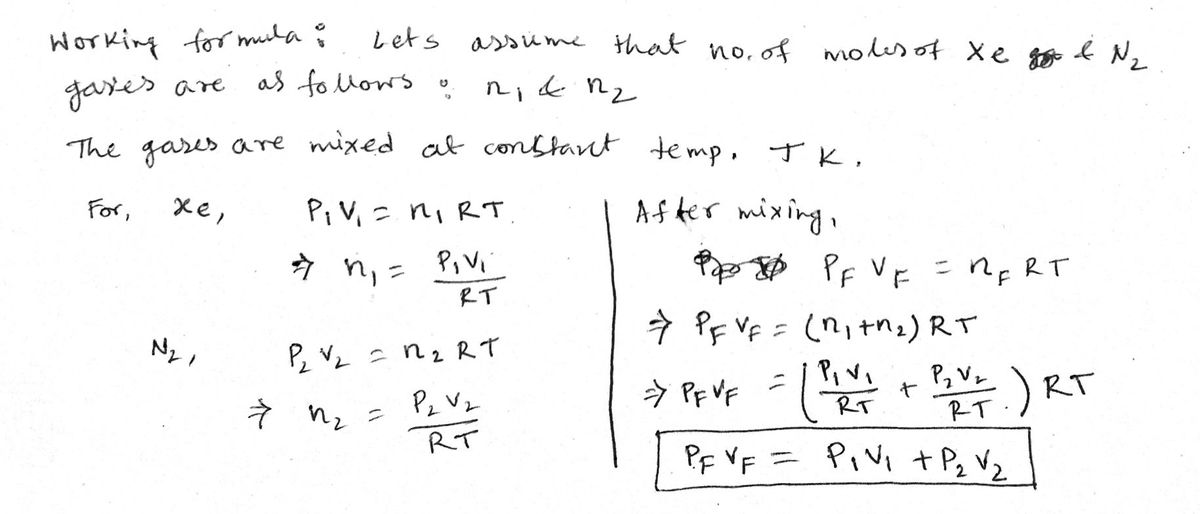 Working formula : Lets assume that no. of moles of Xe & N₂
gases are as follows : n₁ & n₂
The gases are mixed at constant temp. T K.
For, Xe, P₁V₁ = n₁RT.
⇒ n₁ = P₁V₁/RT
N₂, P₂V₂ = n₂RT
⇒ n₂ = P₂V₂/RT
After mixing,
P_F V_F = n_F RT
⇒ P_F V_F = (n₁+n₂)RT
⇒ P_F V_F = (P₁V₁/RT + P₂V₂/RT.) RT
P_F V_F = P₁V₁ + P₂V₂